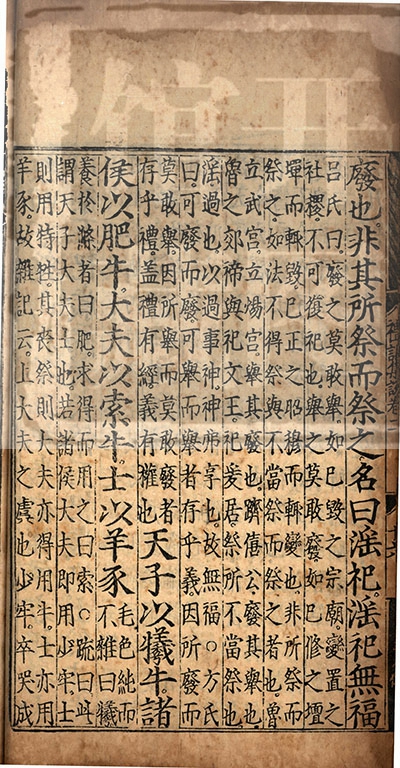 廢也。非其所祭而祭之名曰淫祀。淫祀無福
呂氏曰。廢之莫敢舉。如已毀之宗廟。變置之
社稷。不可復祀也。舉之莫敢廢。如已修之壇
墠而輒毀。已正之昭穆而輒變也。非所祭而
祭之。如法不得祭與不當祭而祭之者也。魯
立武宮。立煬宮。舉其廢也。躋僖公。廢其舉也
魯之郊禘與祀文王。祀爰居。祭所不當祭也
淫過也。以過事神。神弗享也。故無福。○方氏
曰。可廢而廢。可舉而舉者。存乎義。因所廢而
莫敢舉。因所舉而莫敢廢者
存乎禮。蓋禮有經。義有權也
天子以犧牛。諸
侯以肥牛。大夫以索牛。士以羊豕
毛色純而
不雜曰犧
養於滌者曰肥。求得而用之曰索。○疏曰。此
謂天子大夫士也。若諸侯大夫即用少牢。士
則用特牲。其喪祭則大夫亦得用牛。士亦用
羊豕。故雜記云。上大夫之虞也少牢。卒哭成